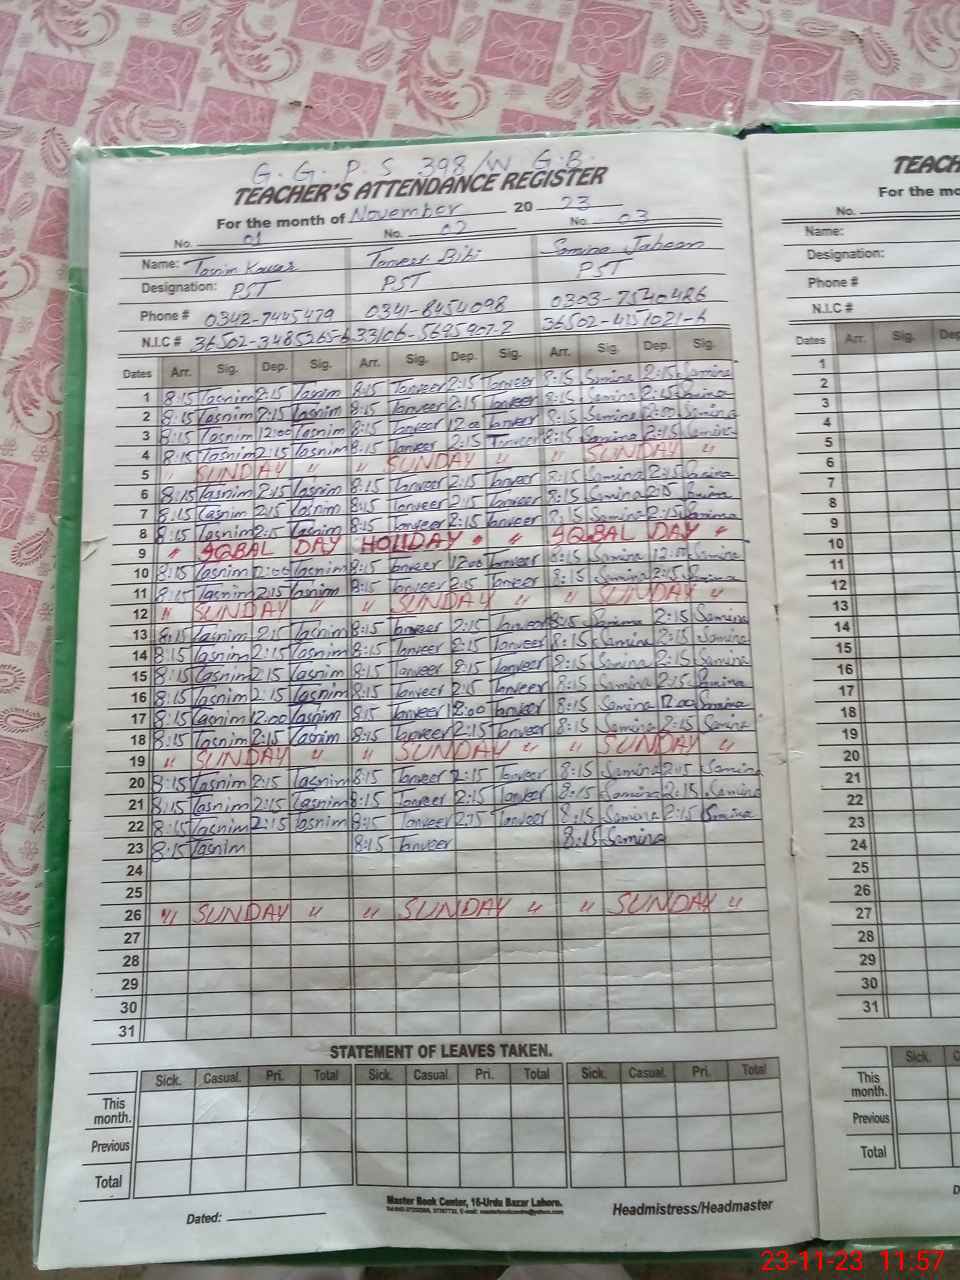 G. G. P. S 398/W G.B.
TEACHER'S ATTENDANCE REGISTER
For the month of November 2023
No. 01 No. 02 No. 03
Name: Tasnim Kausar Tanveer Bibi Samina Jabeen
Designation: PST PST PST
Phone # 0342-7445479 0341-8454098 0303-7540486
N.I.C # 36502-3485265-6 33106-5695907-2 36502-4151021-6
Dates Arr. Sig. Dep. Sig. Arr. Sig. Dep. Sig. Arr. Sig. Dep. Sig.
1 8:15 Tasnim 2:15 Tasnim 8:15 Tanveer 2:15 Tanveer 8:15 Samina 2:15 Samina
2 8:15 Tasnim 2:15 Tasnim 8:15 Tanveer 2:15 Tanveer 8:15 Samina 2:15 Samina
3 8:15 Tasnim 12:00 Tasnim 8:15 Tanveer 12:00 Tanveer 8:15 Samina Samina
4 8:15 Tasnim 2:15 Tasnim 8:15 Tanveer 2:15 Tanveer 8:15 Samina 2:15 Samina
5 " SUNDAY " " SUNDAY " " SUNDAY "
6 8:15 Tasnim 2:15 Tasnim 8:15 Tanveer 2:15 Tanveer 8:15 Samina 2:15 Samina
7 8:15 Tasnim 2:15 Tasnim 8:15 Tanveer 2:15 Tanveer 8:15 Samina 2:15 Samina
8 8:15 Tasnim 2:15 Tasnim 8:15 Tanveer 2:15 Tanveer 8:15 Samina 2:15 Samina
9 " IQBAL DAY HOLIDAY " " IQBAL DAY "
10 8:15 Tasnim Tasnim 8:15 Tanveer 12:00 Tanveer 8:15 Samina 12:00 Samina
11 8:15 Tasnim 2:15 Tasnim 8:15 Tanveer 2:15 Tanveer 8:15 Samina 2:15 Samina
12 " SUNDAY " " SUNDAY " " SUNDAY "
13 8:15 Tasnim 2:15 Tasnim 8:15 Tanveer 2:15 Tanveer 8:15 Samina 2:15 Samina
14 8:15 Tasnim 2:15 Tasnim 8:15 Tanveer 8:15 Tanveer 8:15 Samina 2:15 Samina
15 8:15 Tasnim 2:15 Tasnim 8:15 Tanveer 8:15 Tanveer 8:15 Samina 2:15 Samina
16 8:15 Tasnim 2:15 Tasnim 8:15 Tanveer 2:15 Tanveer 8:15 Samina 2:15 Samina
17 8:15 Tasnim 12:00 Tasnim 8:15 Tanveer 12:00 Tanveer 8:15 Samina 12:00 Samina
18 8:15 Tasnim 2:15 Tasnim 8:15 Tanveer 2:15 Tanveer 8:15 Samina 2:15 Samina
19 " SUNDAY " " SUNDAY " " SUNDAY "
20 8:15 Tasnim 2:15 Tasnim 8:15 Tanveer 2:15 Tanveer 8:15 Samina 2:15 Samina
21 8:15 Tasnim 2:15 Tasnim 8:15 Tanveer 2:15 Tanveer 8:15 Samina 2:15 Samina
22 8:15 Tasnim 2:15 Tasnim 8:15 Tanveer 2:15 Tanveer 8:15 Samina 2:15 Samina
23 8:15 Tasnim 8:15 Tanveer 8:15 Samina
24
25
26 " SUNDAY " " SUNDAY " " SUNDAY "
27
28
29
30
31
STATEMENT OF LEAVES TAKEN.
Sick. Casual. Pri. Total Sick. Casual. Pri. Total Sick. Casual. Pri. Total
This month.
Previous
Total
Dated:
Master Book Center, 16-Urdu Bazar Lahore.
Headmistress/Headmaster
TEACH
For the mo
No.
Name:
Designation:
Phone #
N.I.C #
Dates Arr. Sig. Dep
1
2
3
4
5
6
7
8
9
10
11
12
13
14
15
16
17
18
19
20
21
22
23
24
25
26
27
28
29
30
31
Sick. C
This month.
Previous
Total
D
23-11-23 11:57